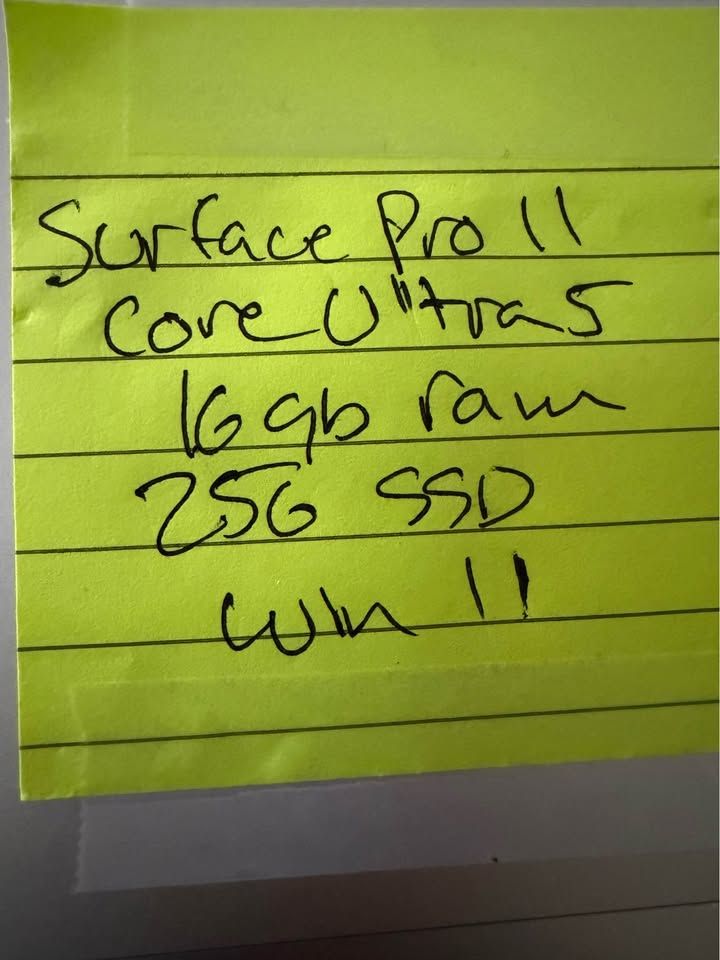 Surface Pro 11
Core Ultra 5
16 gb ram
256 SSD
Win 11